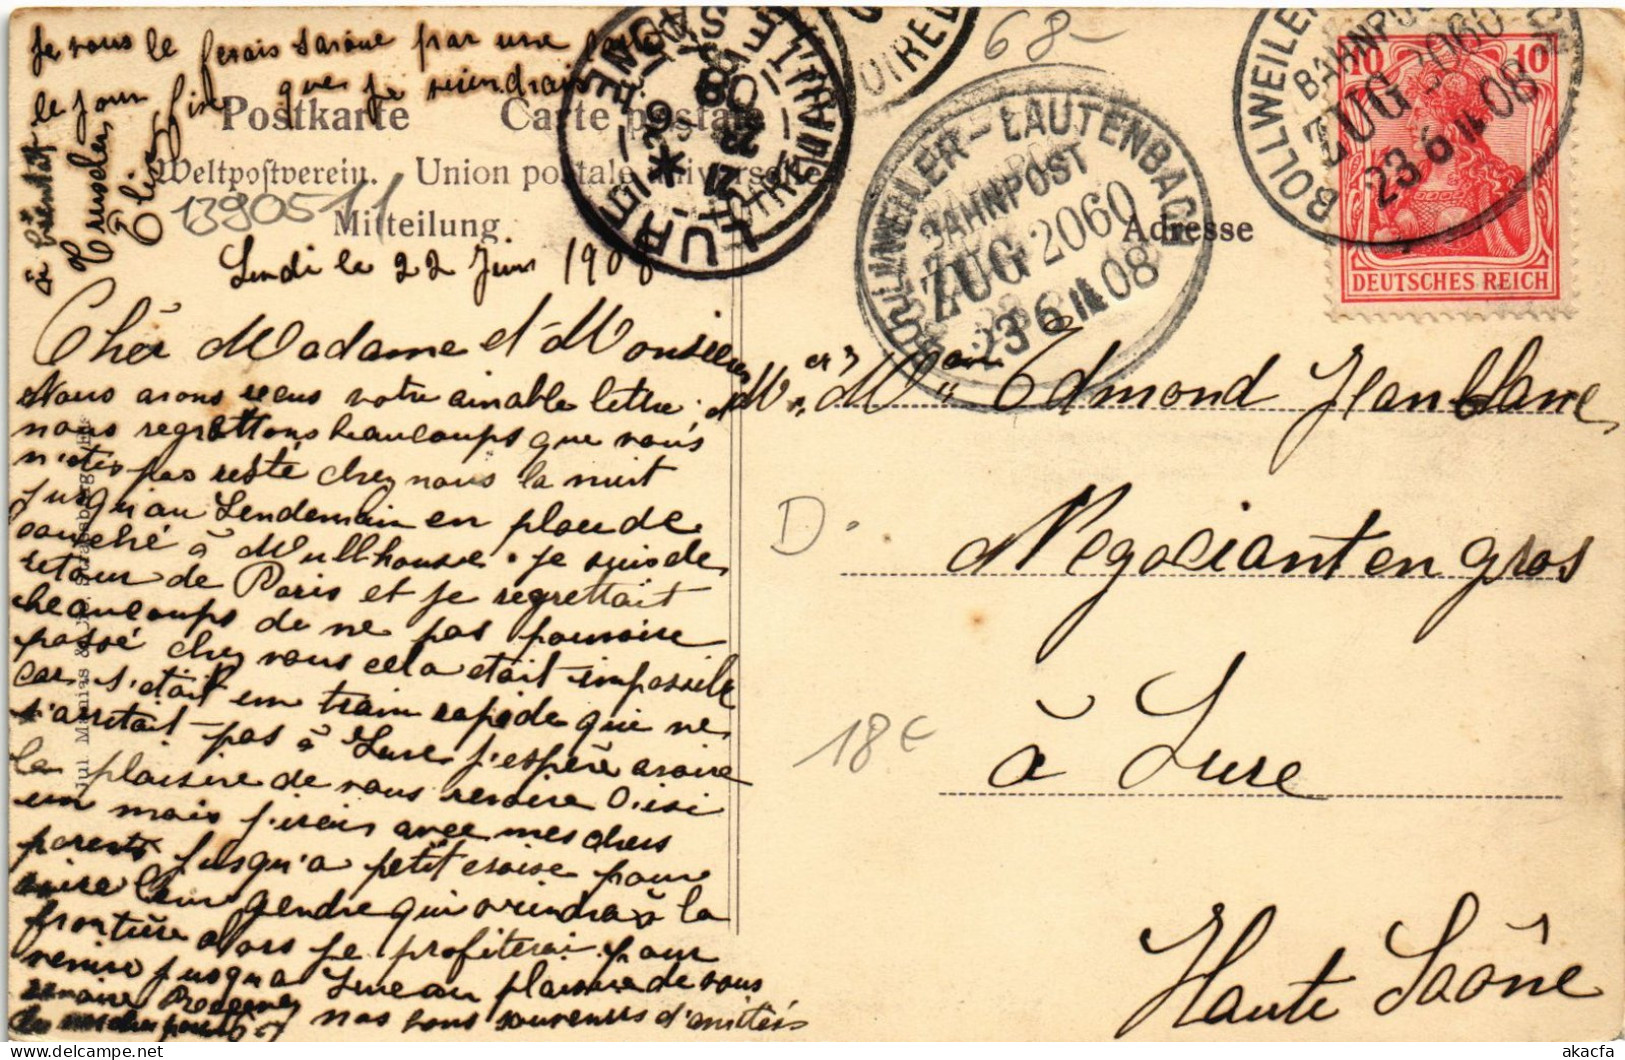 Je vous le ferais savoire par une
le jour que je viendrais
à bientôt
Elise
Postkarte Carte postale
Weltpostverein. Union postale universelle
1390511
Mitteilung.
Lundi le 22 Juin 1908
Chèr Madame et Monsieur
Nous avons reçus votre aimable lettre
nous regrettons beaucoups que vous
n'étés pas resté chez nous la nuit
jusqu'au Lendemain en place de
couché à Mullhouse. je suis de
retour de Paris et je regrettait
beaucoups de ne pas pouvoire
passé chez vous cela était impossible
car s'était un train rapide qui ne
s'arretait pas à Lure j'espère avoire
le plaisire de vous revoire D'isi
un mois j'irais avec mes chers
parents jusqu'a petit croise pour
leur gendre qui viendra à la
frontière alors je profiterai pour
venire jusqu'a Lure au plaisire de vous
revoire Recevez
nos bons souvenirs d'amitiés
Jul. Manias &
LURE
HTE SAÔNE
68-
BOLLWEILER-LAUTENBACH
BAHNPOST
ZUG 2060
23 6 08
BOLLWEILER
BAHNPOST
ZUG 2060
23 6 08
10 10
DEUTSCHES REICH
Adresse
Mr et Mme Edmond Jeanblanc
Négociant en gros
à Lure
Haute Saône
D.
18€
akacfa